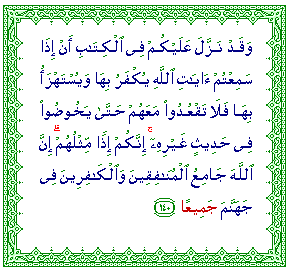 وَقَدْ نَزَّلَ عَلَيْكُمْ فِى ٱلْكِتَٰبِ أَنْ إِذَا
سَمِعْتُمْ ءَايَٰتِ ٱللَّهِ يُكْفَرُ بِهَا وَيُسْتَهْزَأُ
بِهَا فَلَا تَقْعُدُوا۟ مَعَهُمْ حَتَّىٰ يَخُوضُوا۟
فِى حَدِيثٍ غَيْرِهِۦٓ ۚ إِنَّكُمْ إِذًا مِّثْلُهُمْ ۗ إِنَّ
ٱللَّهَ جَامِعُ ٱلْمُنَٰفِقِينَ وَٱلْكَٰفِرِينَ فِى
جَهَنَّمَ جَمِيعًا ١٤٠